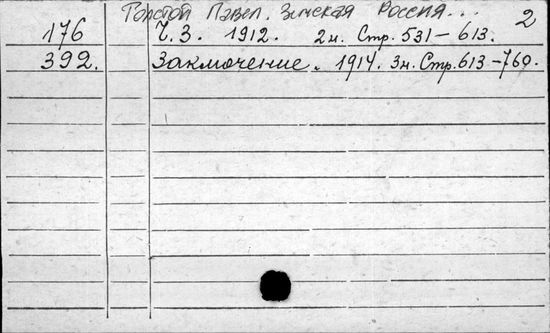 Толстой Павел. Земская Россия... 2
176 Ч. 3. 1912. 2н. Стр. 531–613.
392. Заключение. 1914. 3н. Стр. 613–760.